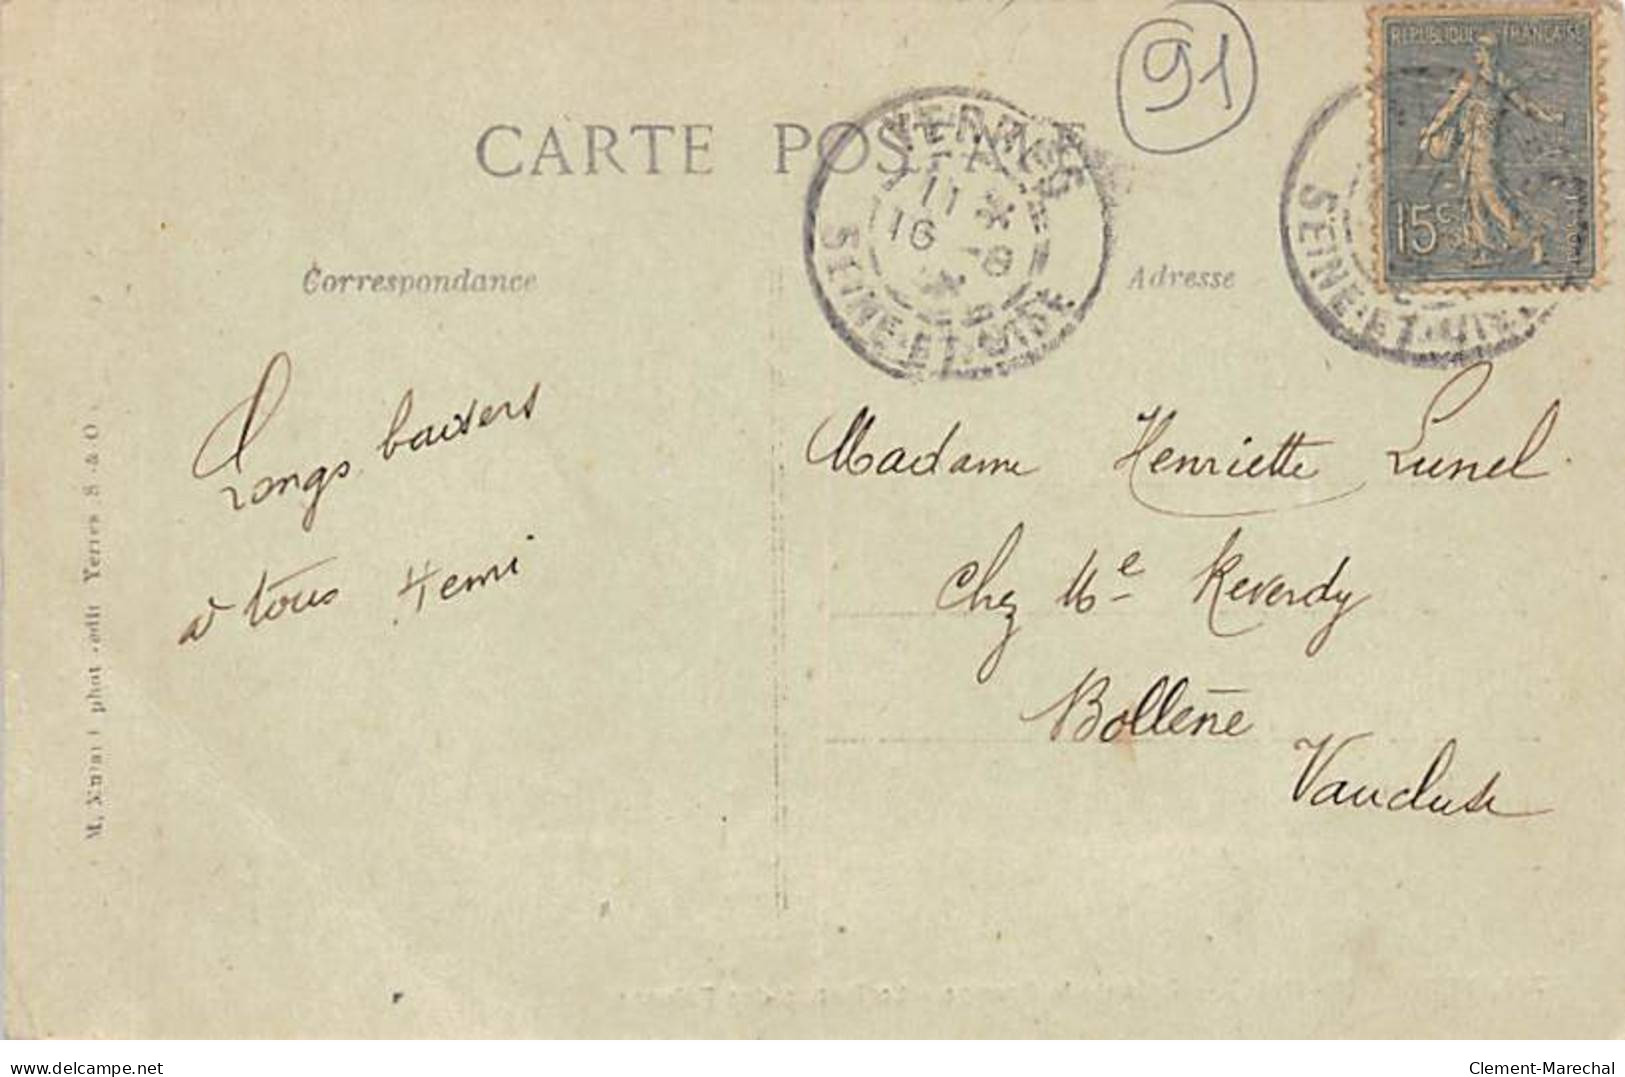 91
REPUBLIQUE FRANÇAISE
15c
CARTE POSTALE
YERRES
11 *
16 -8
SEINE-ET-OISE
SEINE-ET-OISE
Correspondance
Adresse
Longs baisers
à tous Henri
Madame Henriette Lunel
Chez Me Reverdy
Bollène
Vaucluse
phot édit Yerres S & O
delcampe.net
Clement-Marechal